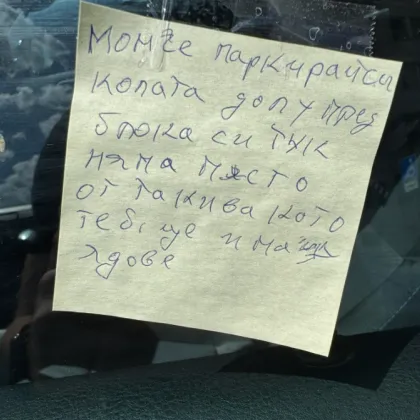 Момче паркирайси
колата долу пред
блока си тук
няма място
от такива като
тебе ще има
ядове